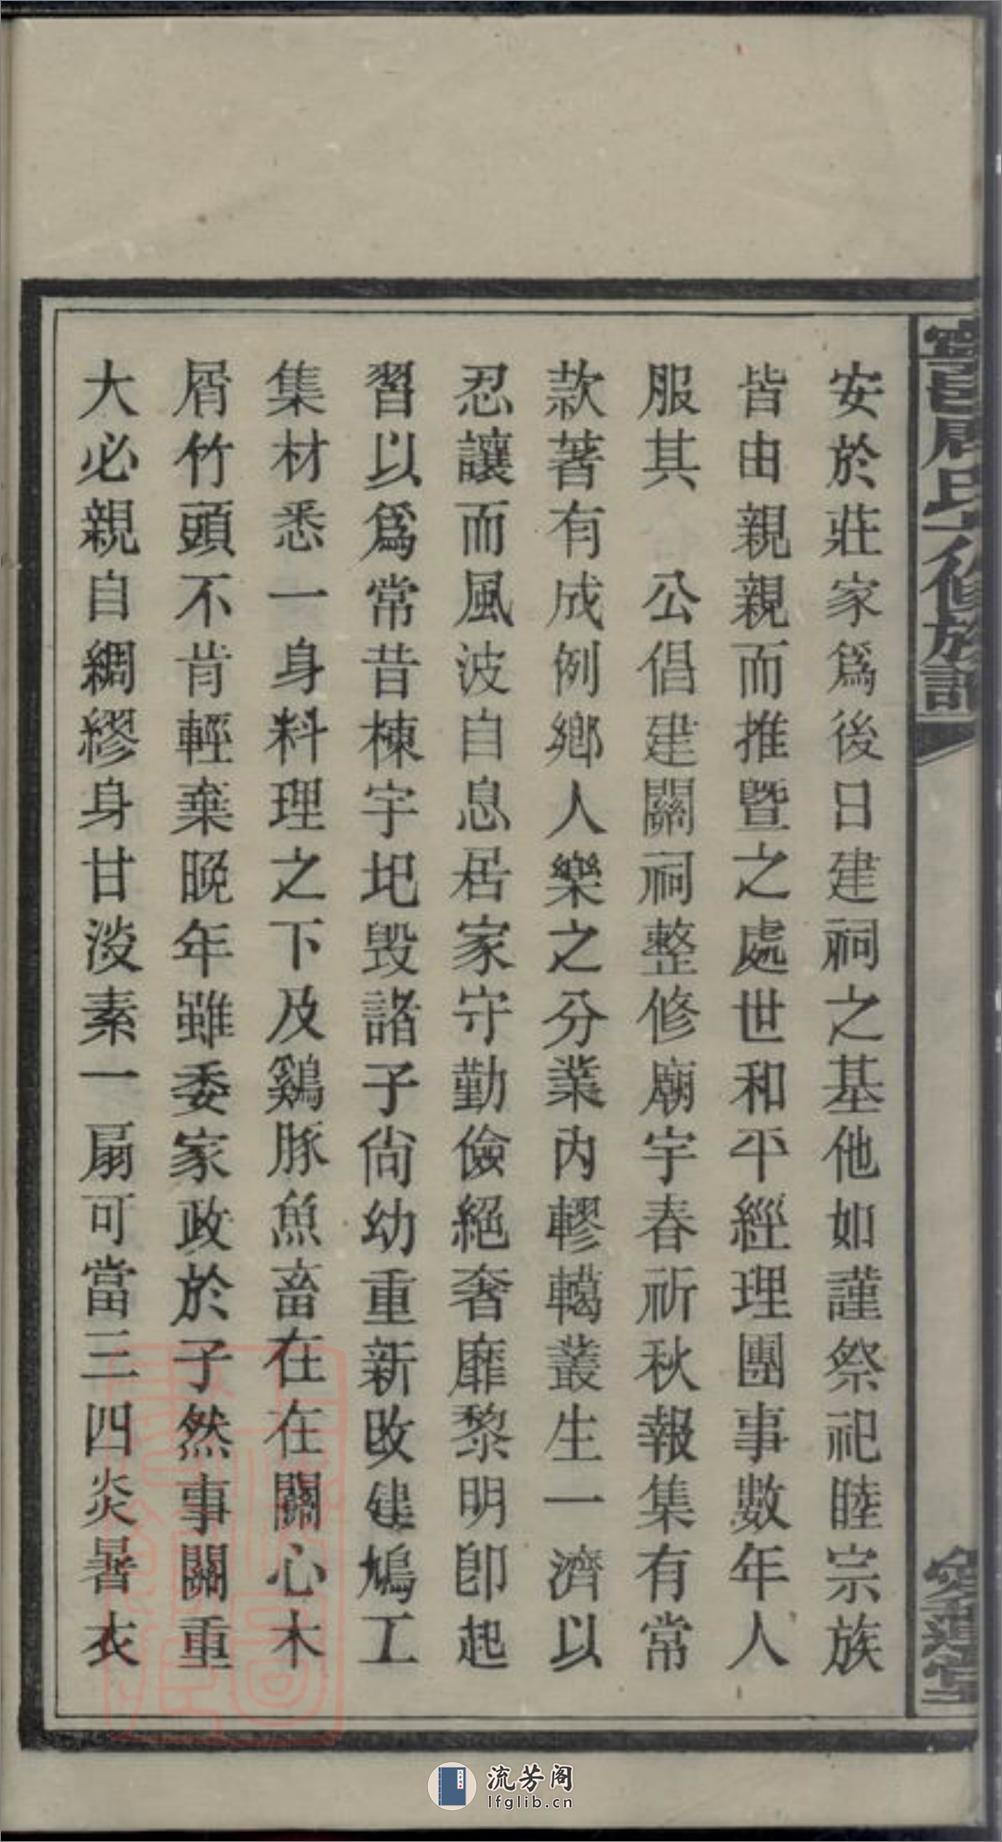 安於莊家爲後日建祠之基他如謹祭祀睦宗族
皆由親親而推暨之處世和平經理團事數年人
服其　公倡建關祠整修廟宇春祈秋報集有常
款著有成例鄉人樂之分業內轇轕叢生一濟以
忍讓而風波自息居家守勤儉絕奢靡黎明卽起
習以爲常昔棟宇圯毀諸子尙幼重新改建鳩工
集材悉一身料理之下及鷄豚魚畜在在關心木
屑竹頭不肯輕棄晚年雖委家政於子然事關重
大必親自綢繆身甘淡素一扇可當三四炎暑衣
寧邑周氏六修族譜
堂
流芳阁
lfglib.cn